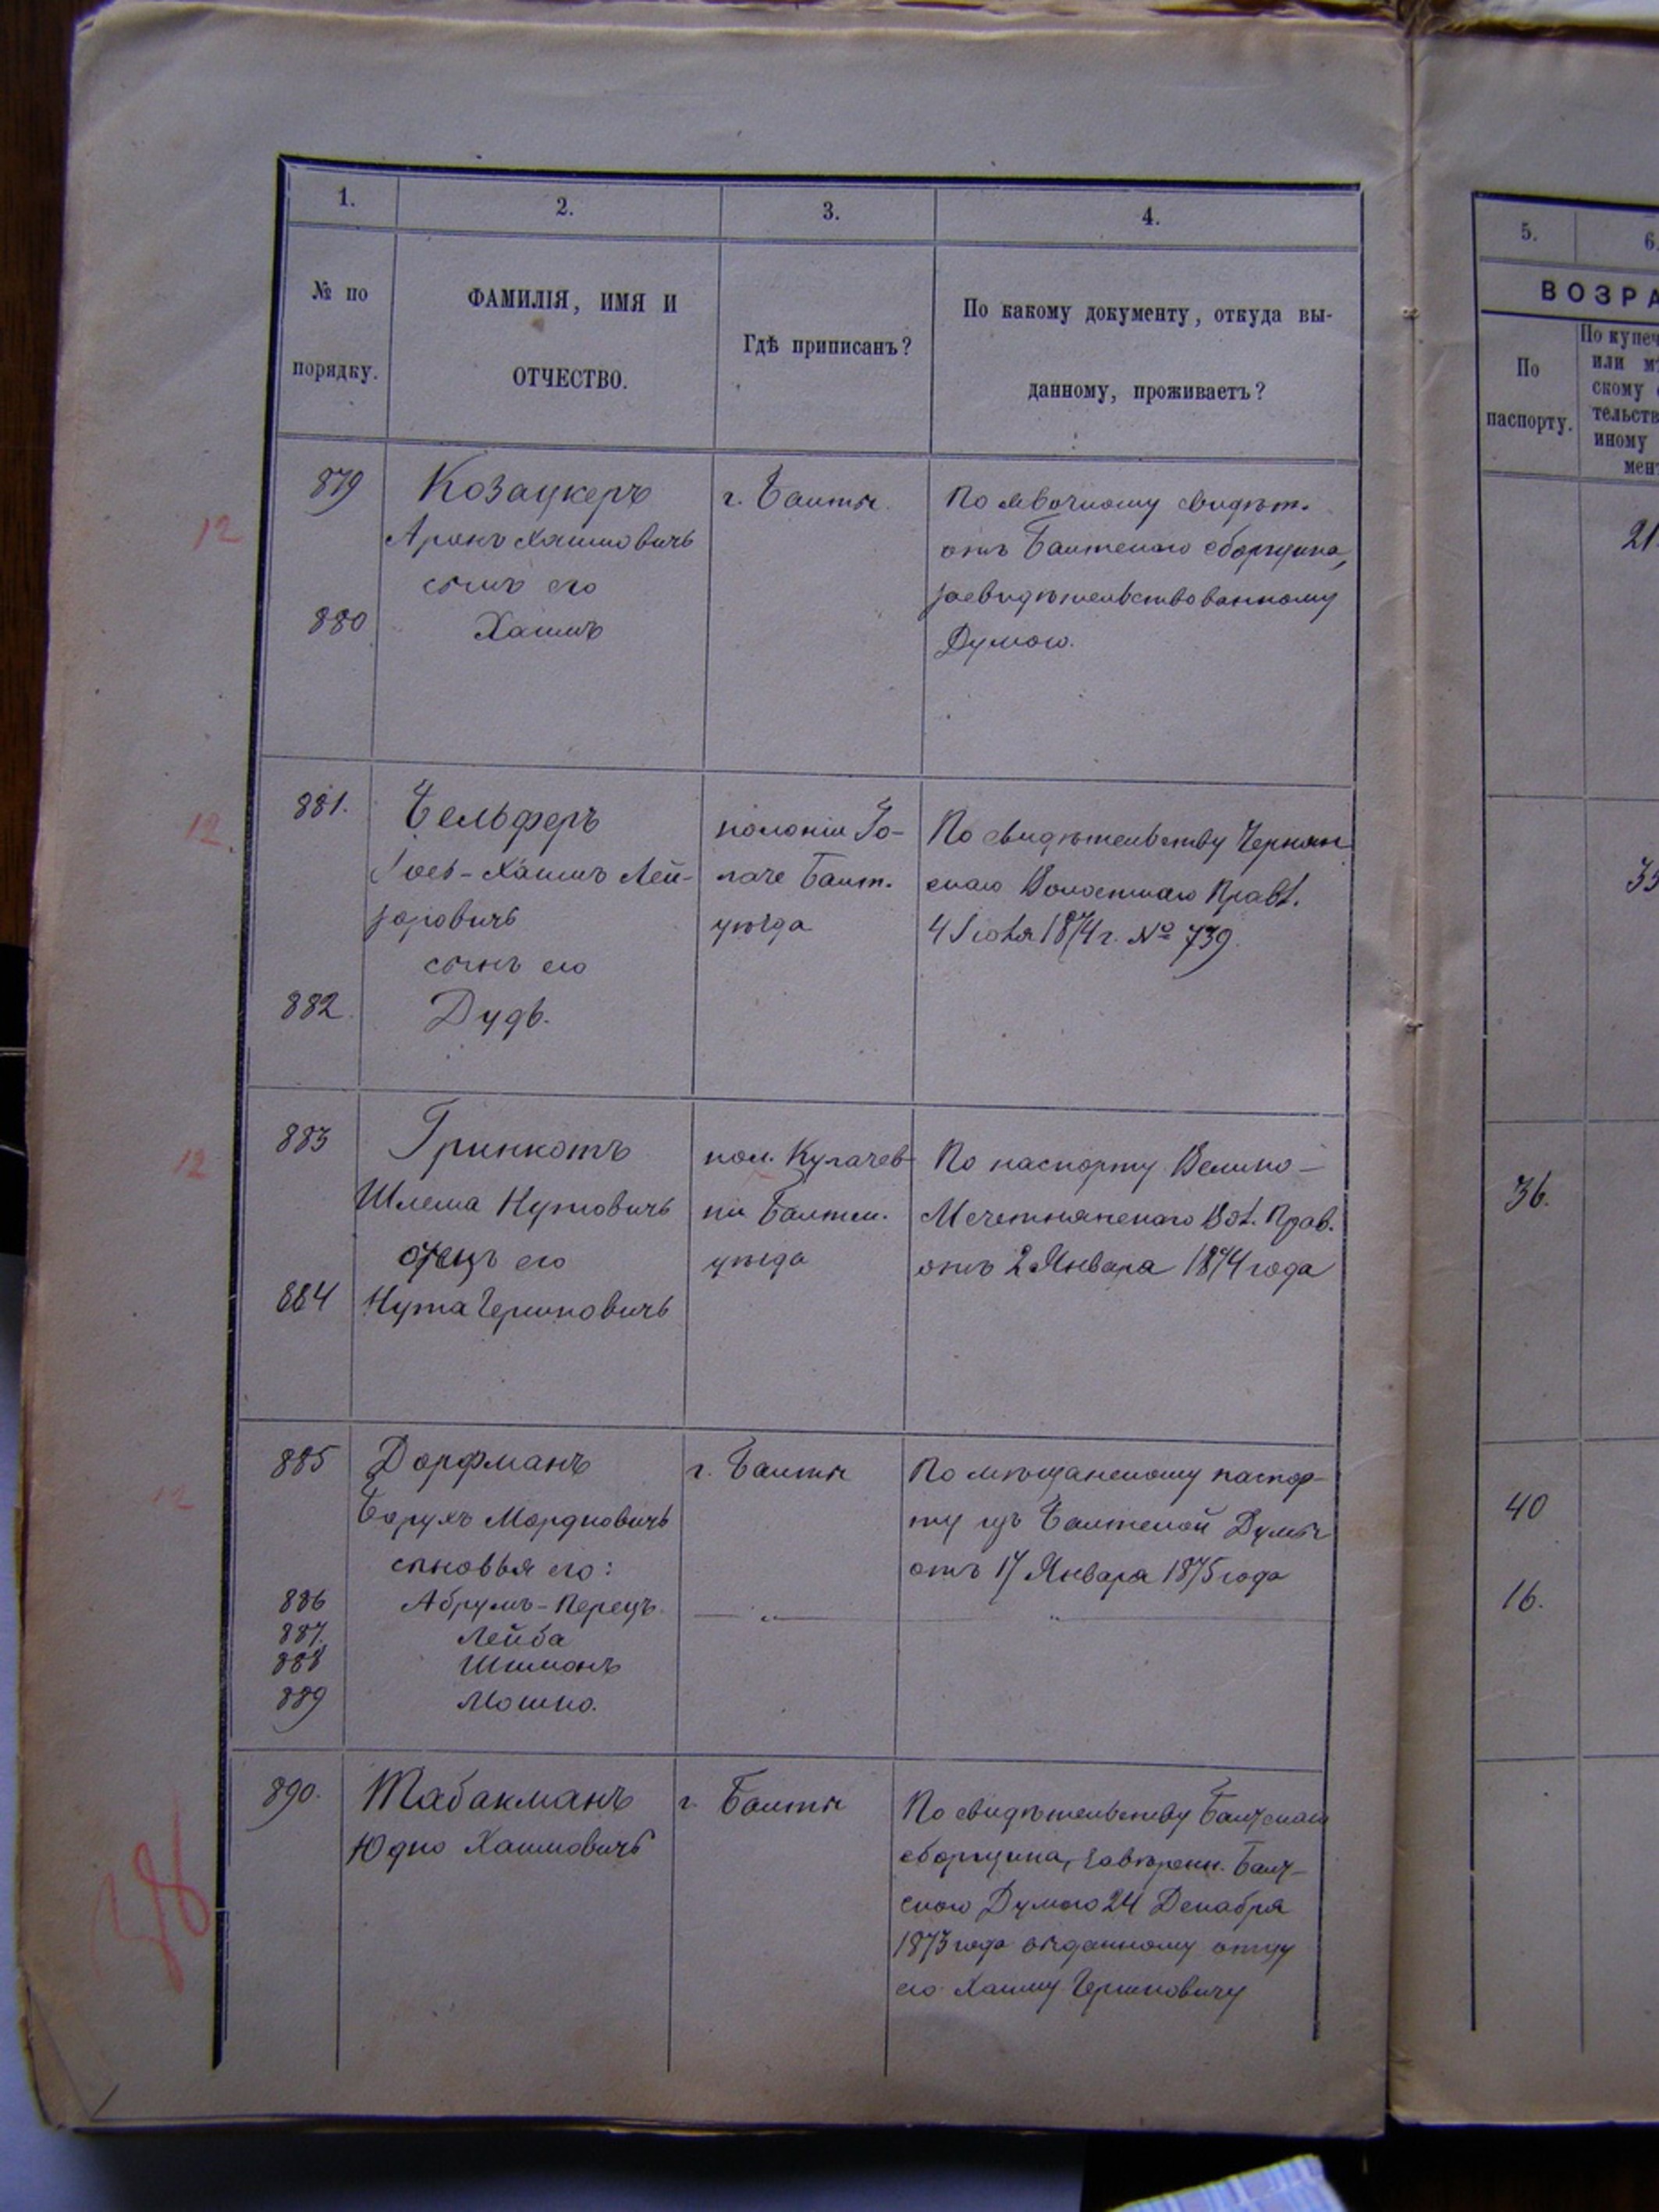 1.
2.
3.
4.
№ по
порядку.
ФАМИЛІЯ, ИМЯ И
ОТЧЕСТВО.
Гдѣ приписанъ?
По какому документу, откуда вы-
данному, проживаетъ?
5.
6.
ВОЗРА
По
паспорту.
По купеч
или мѣ
скому
тельств
иному
мен
12
879
Козацкеръ
г. Балты.
По явочному свидѣт.
Аронъ Хаимовичъ
отъ Балтскаго сборщика,
21
сынъ его
засвидѣтельствованному
880
Хаимъ
Думою.
12.
881.
Бельферъ
колоніи Го-
По свидѣтельству Чернян
Іось-Хаимъ Лей-
лаче Балт.
скаго Волостнаго Правл.
35
зоровичъ
уѣзда
4 Іюля 1874 г. № 739.
сынъ его
882.
Дудь.
12
883
Гринкотъ
кол. Кулачев-
По паспорту Велико-
36.
Шлема Нутовичъ
ки Балтск.
Мечетнянскаго Вол. Прав.
отецъ его
уѣзда
отъ 2 Января 1874 года
884
Нута Гершковичъ
12
885
Дорфманъ
г. Балты
По мѣщанскому паспор-
40
Борухъ Мордковичъ
ту изъ Балтской Думы
сыновья его:
отъ 17 Января 1875 года
886
Абрумъ-Перецъ.
— „ —
„
16.
887.
Лейба
888
Шимонъ
889
Мошко.
890.
Табакманъ
г. Балты
По свидѣтельству Балтскаго
Юдко Хаимовичъ
сборщика, завѣренн. Балт-
скою Думою 24 Декабря
1873 года выданному отцу
его Хаиму Гершковичу